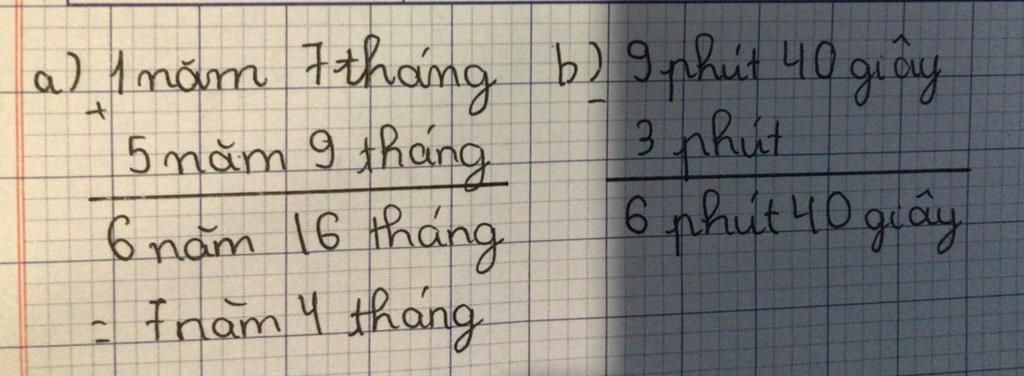 a) 1 năm 7 tháng
+
5 năm 9 tháng
6 năm 16 tháng
= 7 năm 4 tháng
b) 9 phút 40 giây
-
3 phút
6 phút 40 giây